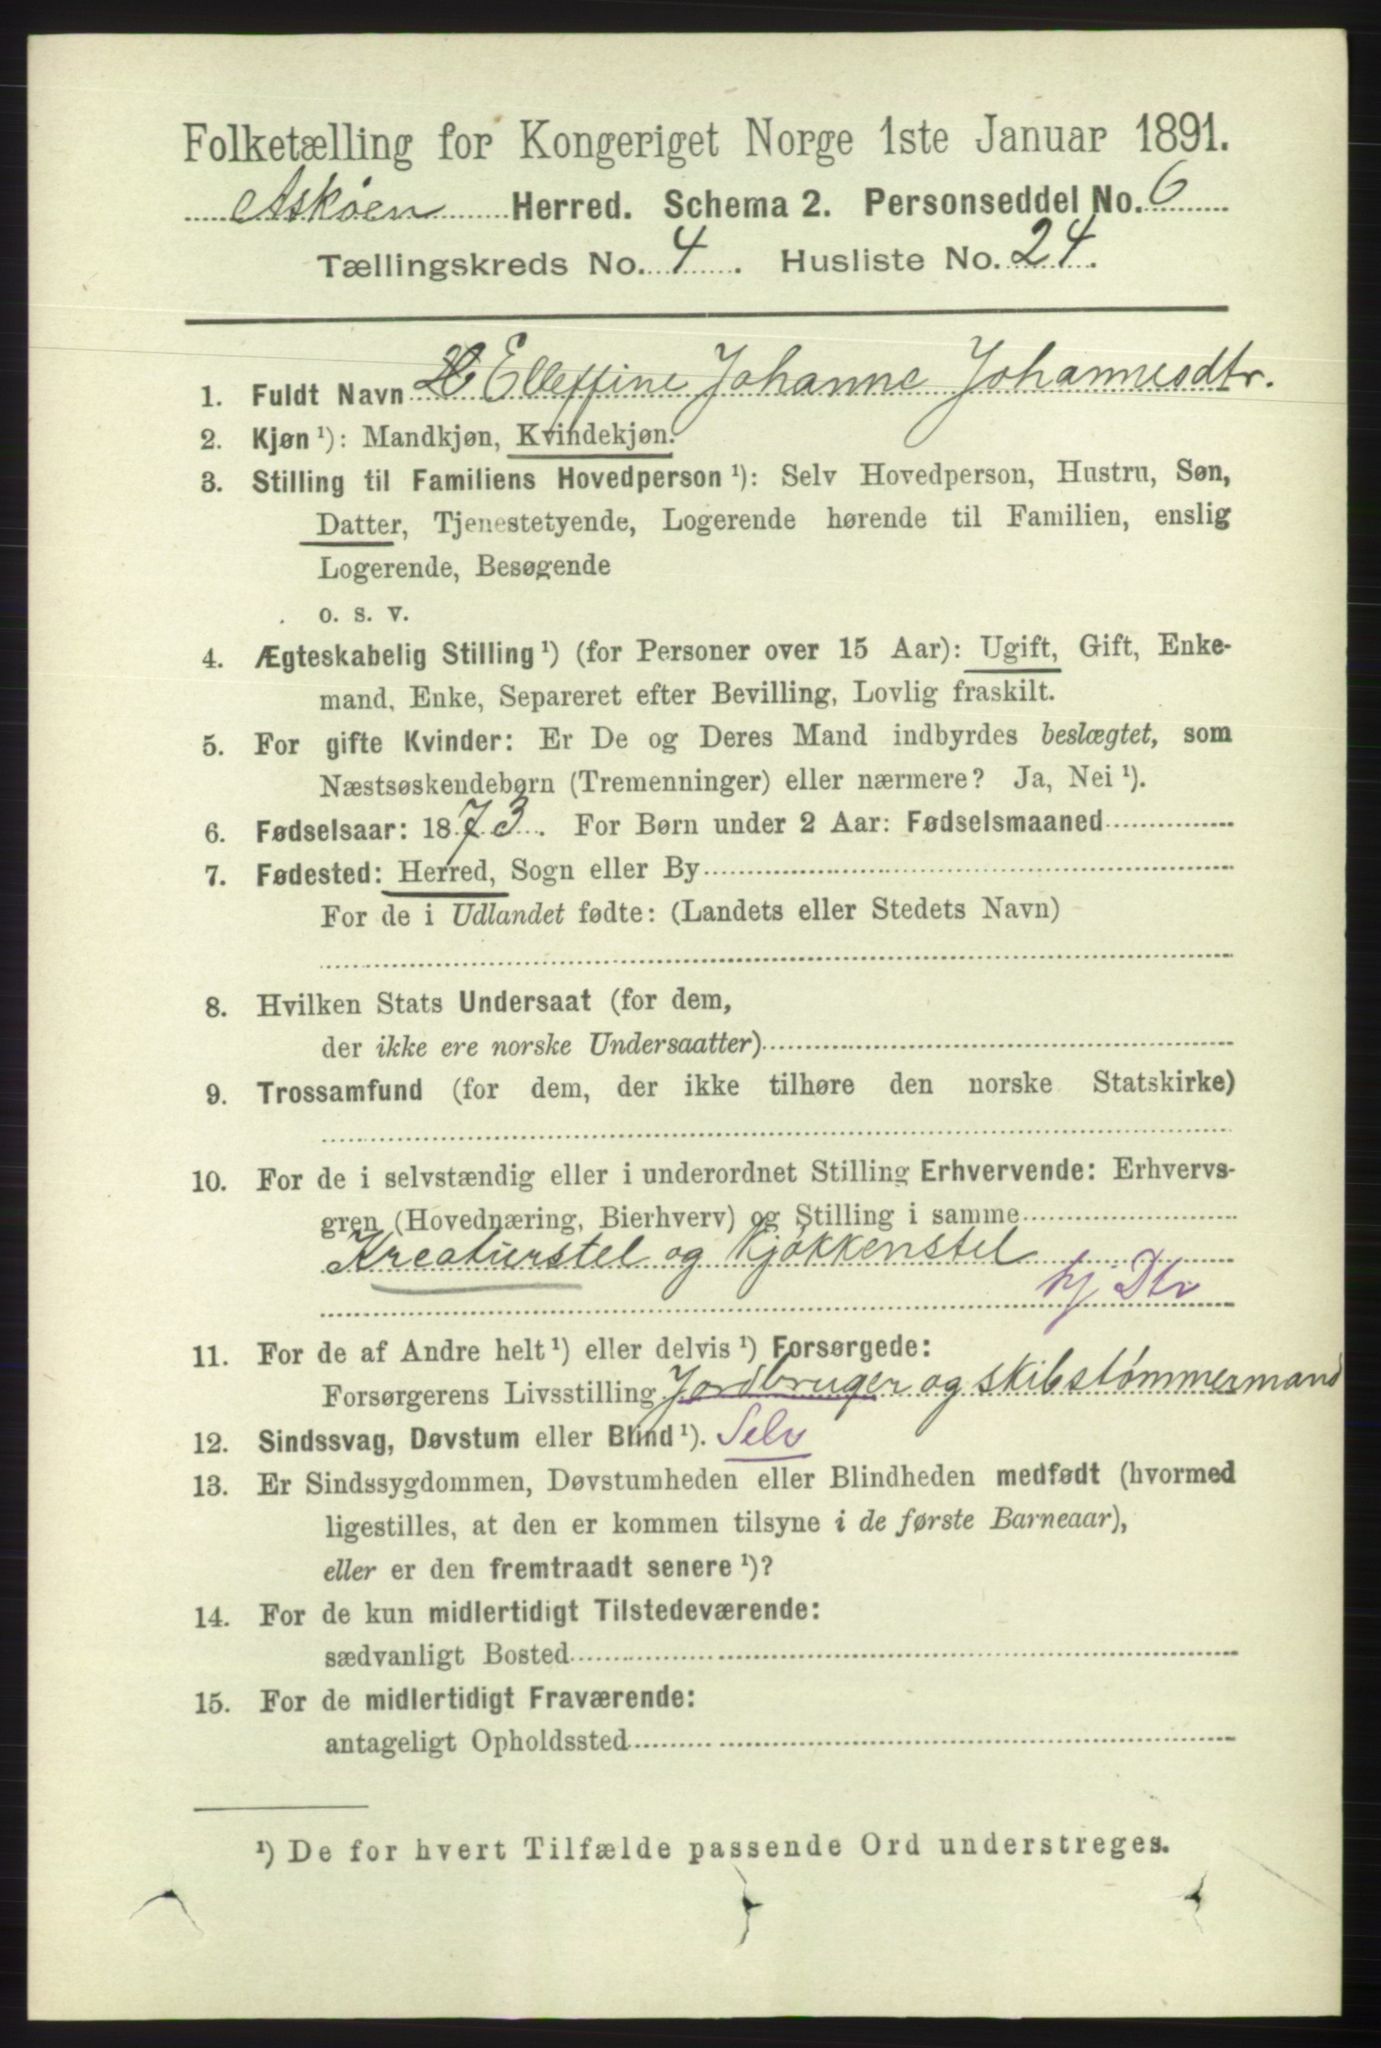 Folketælling for Kongeriget Norge 1ste Januar 1891.
Askøen Herred. Schema 2. Personseddel No. 6
Tællingskreds No. 4. Husliste No. 24.
1. Fuldt Navn Elleffine Johanne Johannesdtr.
2. Kjøn ¹): Mandkjøn, Kvindekjøn.
3. Stilling til Familiens Hovedperson ¹): Selv Hovedperson, Hustru, Søn,
Datter, Tjenestetyende, Logerende hørende til Familien, enslig
Logerende, Besøgende
o. s. v.
4. Ægteskabelig Stilling ¹) (for Personer over 15 Aar): Ugift, Gift, Enke-
mand, Enke, Separeret efter Bevilling, Lovlig fraskilt.
5. For gifte Kvinder: Er De og Deres Mand indbyrdes beslægtet, som
Næstsøskendebørn (Tremenninger) eller nærmere? Ja, Nei ¹).
6. Fødselsaar: 1873. For Børn under 2 Aar: Fødselsmaaned
7. Fødested: Herred, Sogn eller By
For de i Udlandet fødte: (Landets eller Stedets Navn)
8. Hvilken Stats Undersaat (for dem,
der ikke ere norske Undersaatter)
9. Trossamfund (for dem, der ikke tilhøre den norske Statskirke)
10. For de i selvstændig eller i underordnet Stilling Erhvervende: Erhvervs-
gren (Hovednæring, Bierhverv) og Stilling i samme
Kreaturstel og Kjøkkenstel
hj Dtr
11. For de af Andre helt ¹) eller delvis ¹) Forsørgede:
Forsørgerens Livsstilling Jordbruger og skibstømmermand
12. Sindssvag, Døvstum eller Blind ¹). Selv
13. Er Sindssygdommen, Døvstumheden eller Blindheden medfødt (hvormed
ligestilles, at den er kommen tilsyne i de første Barneaar),
eller er den fremtraadt senere ¹)?
14. For de kun midlertidigt Tilstedeværende:
sædvanligt Bosted
15. For de midlertidigt Fraværende:
antageligt Opholdssted
¹) De for hvert Tilfælde passende Ord understreges.